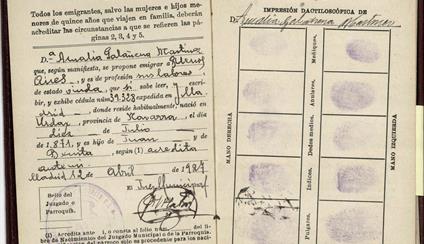 Todos los emigrantes, salvo las mujeres e hijos me-
nores de quince años que viajen en familia, deberán
acreditar las circunstancias a que se refieren las pá-
ginas 2, 3, 4 y 5.
D.ª Amalia Galañena Martinez
que, según manifiesta, se propone emigrar a Buenos
Aires, y es de profesión sus labores,
de estado viuda, que sí sabe leer, y escri-
bir, y exhibe cédula núm. expedida en Ma
drid, donde reside habitualmente, nació en
Urdax, provincia de Navarra, el día
diez de Julio
de 1.871, y es hijo de Juan y de
Benita, según (1) acredita
ante mi.
Madrid 12 de Abril de 1927
El Juez Municipal
Sello del
Juzgado o
Parroquia.
(1) Acredita ante mí, o consta al folio núm. del li-
bro de Nacimientos del Juzgado Municipal o de la Parroquia.
IMPRESIÓN DACTILOSCÓPICA DE
D.ª Amalia Galañena Martinez
MANO DERECHA
Pulgares.
Índices.
Dedos medios.
Anulares.
Meñiques.
MANO IZQUIERDA